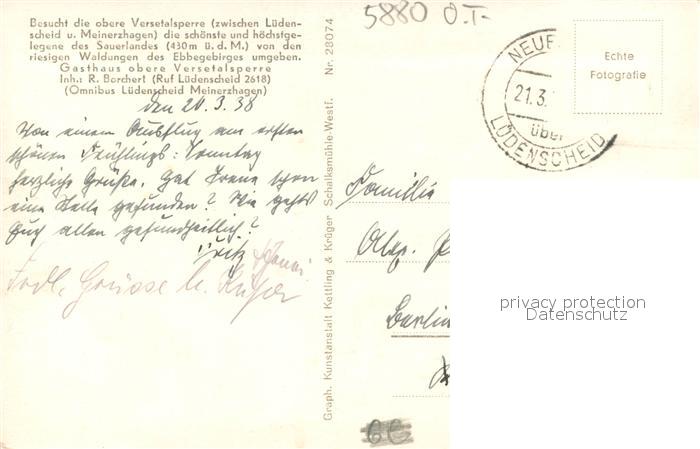 Besucht die obere Versetalsperre (zwischen Lüden-
scheid u. Meinerzhagen) die schönste und höchstge-
legene des Sauerlandes (430 m ü. d. M.) von den
riesigen Waldungen des Ebbegebirges umgeben.
Gasthaus obere Versetalsperre
Inh.: R. Borchert (Ruf Lüdenscheid 2618)
(Omnibus Lüdenscheid Meinerzhagen)
den 20.3.38
Von einem Ausflug am ersten
schönen Frühlings-Sonntag
herzliche Grüße. Hat Irene schon
eine Stelle gefunden? Wie geht's
Euch allen gesundheitlich?
Fritz
Frdl. Grüsse
Graph. Kunstanstalt Kettling & Krüger Schalksmühle-Westf. Nr. 28074
5880 O.T.
NEUE
21.3.
über
LÜDENSCHEID
Echte
Fotografie
Familie
Alex.
Berlin
privacy protection
Datenschutz